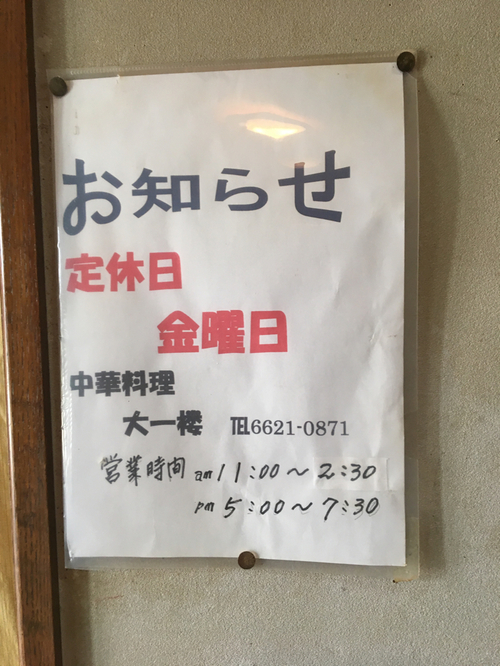 お知らせ
定休日
金曜日
中華料理
大一楼 ℡6621-0871
営業時間 am 11:00～2:30
pm 5:00～7:30